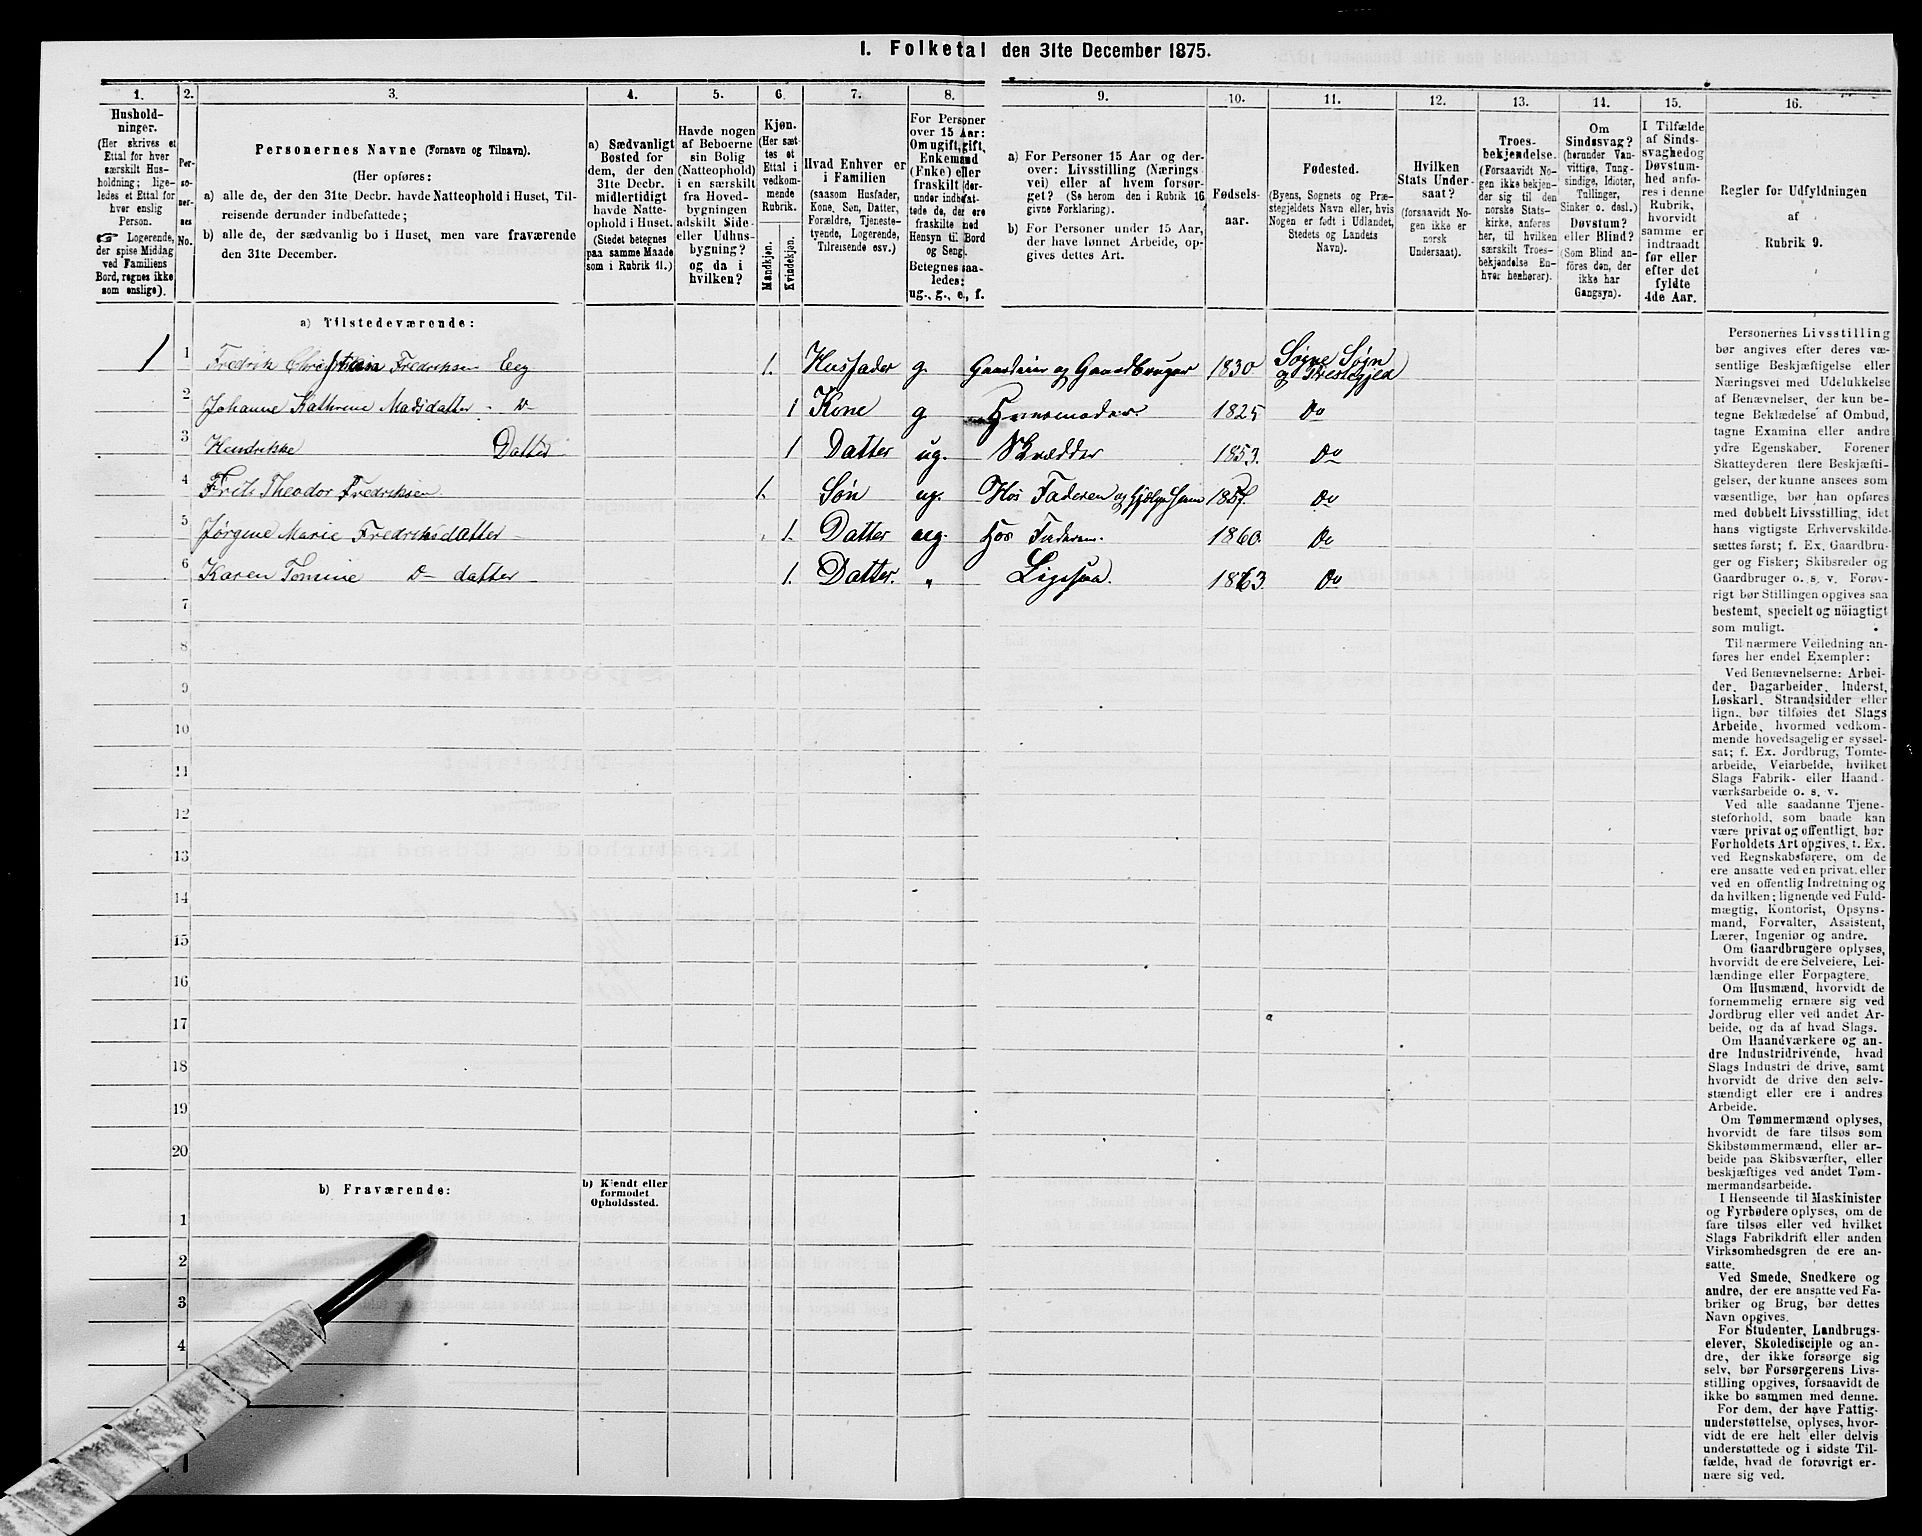 I. Folketal den 31te December 1875.
1. 2. 3. 4. 5. 6. 7. 8. 9. 10. 11. 12. 13. 14. 15. 16.
Hushold-
ninger.
(Her skrives et
Ettal for hver
særskilt Hus-
holdning; lige-
ledes et Ettal for
hver enslig
Person.
☞ Logerende,
der spise Middag
ved Familiens
Bord, regnes ikke
som enslige).
Per-
so-
ner-
nes
No.
Personernes Navne (Fornavn og Tilnavn).
(Her opføres:
a) alle de, der den 31te Decbr. havde Natteophold i Huset, Til-
reisende derunder indbefattede;
b) alle de, der sædvanlig bo i Huset, men vare fraværende
den 31te December.
a) Sædvanligt
Bosted for
dem, der den
31te Decbr.
midlertidigt
havde Natte-
ophold i Huset.
(Stedet betegnes
paa samme Maade
som i Rubrik 11.)
Havde nogen
af Beboerne
sin Bolig
(Natteophold)
i en særskilt
fra Hoved-
bygningen
adskilt Side-
eller Udhus-
bygning?
og da i
hvilken?
Kjøn.
(Her sæt-
tes et
Ettal i
vedkom-
mende
Rubrik.
Mandkjøn.
Kvindekjøn.
Hvad Enhver er
i Familien
(saasom Husfader,
Kone, Søn, Datter,
Forældre, Tjeneste-
tyende, Logerende,
Tilreisende osv.)
For Personer
over 15 Aar:
Om ugift, gift,
Enkemand
(Enke) eller
fraskilt (der-
under indbefat-
tede de, der ere
fraskilte med
Hensyn til Bord
og Seng).
Betegnes saa-
ledes:
ug., g., e., f.
a) For Personer 15 Aar og der-
over: Livsstilling (Nærings-
vei) eller af hvem forsør-
get? (Se herom den i Rubrik 16
givne Forklaring).
b) For Personer under 15 Aar,
der have lønnet Arbeide, op-
gives dettes Art.
Fødsels-
aar.
Fødested.
(Byens, Sognets og Præ-
stegjeldets Navn eller, hvis
Nogen er født i Udlandet,
Stedets og Landets
Navn).
Hvilken
Stats Under-
saat?
(forsaavidt No-
gen ikke er
norsk
Undersaat).
Troes-
bekjendelse.
(Forsaavidt No-
gen ikke bekjen-
der sig til den
norske Stats-
kirke, anføres
her, til hvilken
særskilt Troes-
bekjendelse En-
hver henhører).
Om
Sindssvag?
(herunder Van-
vittige, Tung-
sindige, Idioter,
Tullinger,
Sinker o. desl.)
Døvstum?
eller Blind?
(Som Blind an-
føres den, der
ikke har
Gangsyn).
I Tilfælde
af Sinds-
svaghed og
Døvstum-
hed anfø-
res i denne
Rubrik,
hvorvidt
samme er
indtraadt
før eller
efter det
fyldte
4de Aar.
Regler for Udfyldningen
af
Rubrik 9.
a) Tilstedeværende:
1 1 Fredrik Christian Fredriksen Eeg 1. Husfader g. Gaardeier og Gaardbruger 1830 Søgne Sogn
og Prestegjed
2 Johanne Kathrene Madsdatter - D- 1 Kone g Huusmoder. 1825 Do
3 Hendrikke Datter 1 Datter ug. Skrædder 1853. Do
4 Frits Theodor Fredriksen 1. Søn ug. Hos Faderen og 1857 Do
5 Jørgine Marie Fredriksdatter 1. Datter ug. Hos Faderen. 1860. Do
6 Karen Tomine D- datter 1. Datter. " Ligesaa. 1863. Do
7
8
9
10
11
12
13
14
15
16
17
18
19
20
b) Fraværende:
b) Kjendt eller
formodet
Opholdssted.
1
2
3
4
5
Personernes Livsstilling
bør angives efter deres væ-
sentlige Beskjæftigelse eller
Næringsvei med Udelukkelse
af Benævnelser, der kun be-
tegne Beklædelse af Ombud,
tagne Examina eller andre
ydre Egenskaber. Forener
Skatteyderen flere Beskjæfti-
gelser, der kunne ansees som
væsentlige, bør han opføres
med dobbelt Livsstilling, idet
hans vigtigste Erhvervskilde
sættes først; f. Ex. Gaardbru-
ger og Fisker; Skibsreder og
Gaardbruger o. s. v. Forøv-
rigt bør Stillingen opgives saa
bestemt, specielt og nöiagtigt
som muligt.
Til nærmere Veiledning an-
føres her endel Exempler:
Ved Benævnelserne: Arbei-
der, Dagarbeider, Inderst,
Løskarl, Strandsidder eller
lign., bør tilføies det Slags
Arbeide, hvormed vedkom-
mende hovedsagelig er syssel-
sat; f. Ex. Jordbrug, Tomte-
arbeide, Veiarbeide, hvilket
Slags Fabrik- eller Haand-
værksarbeide o. s. v.
Ved alle saadanne Tjene-
steforhold, som baade kan
være privat og offentligt, bør
Forholdets Art opgives, t. Ex.
ved Regnskabsførere, om de
ere ansatte ved en privat eller
ved en offentlig Indretning og
da hvilken; lignende ved Fuld-
mægtig, Kontorist, Opsyns-
mand, Forvalter, Assistent,
Lærer, Ingeniør og andre.
Om Gaardbrugere oplyses,
hvorvidt de ere Selveiere, Lei-
lændinge eller Forpagtere.
Om Husmænd, hvorvidt de
fornemmelig ernære sig ved
Jordbrug eller ved andet Ar-
beide, og da af hvad Slags.
Om Haandværkere og an-
dre Industridrivende, hvad
Slags Industri de drive, samt
hvorvidt de drive den selv-
stændigt eller ere i andres
Arbeide.
Om Tømmermænd oplyses,
hvorvidt de fare tilsøs som
Skibstømmermænd, eller ar-
beide paa Skibsværfter, eller
beskjæftiges ved andet Tøm-
mermandsarbeide.
I Henseende til Maskinister
og Fyrbødere oplyses, om de
fare tilsøs eller ved hvilket
Slags Fabrikdrift eller anden
Virksomhedsgren de ere an-
satte.
Ved Smede, Snedkere og
andre, der ere ansatte ved Fa-
briker og Brug, bør dettes
Navn opgives.
For Studenter, Landbrugs-
elever, Skoledisciple og an-
dre, der ikke forsørge sig
selv, bør Forsørgerens Livs-
stilling opgives, forsaavidt de
ikke bo sammen med denne.
For dem, der have Fattig-
understøttelse, oplyses, hvor-
vidt de ere helt eller delvis
understøttede og i sidste Til-
fælde, hvad de forøvrigt er-
nære sig ved.